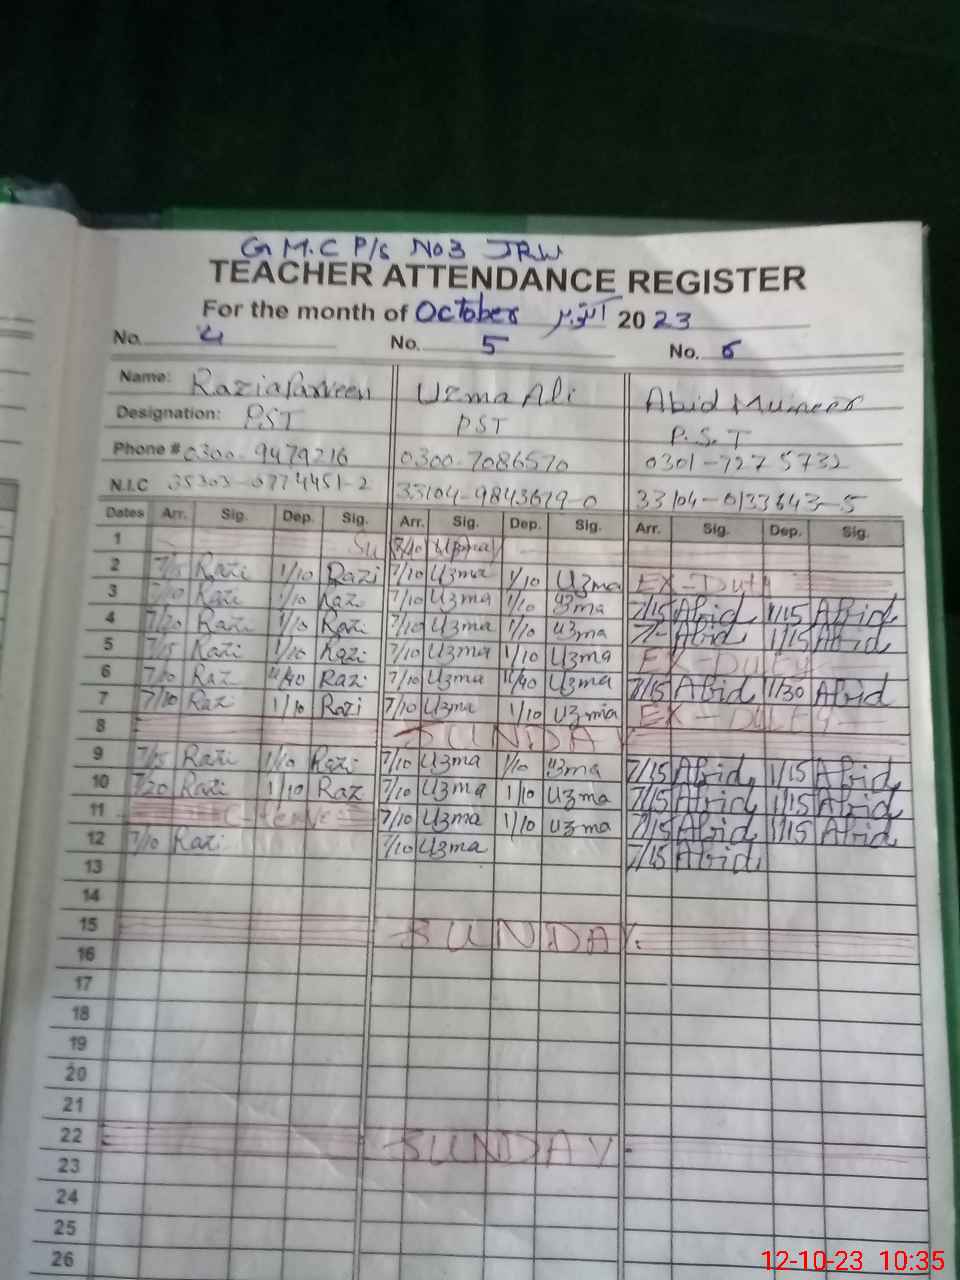 G M.C P/S No 3 JRW
TEACHER ATTENDANCE REGISTER
For the month of October اکتوبر 20 23
No. 4 No. 5 No. 6
Name: Razia Parveen Uzma Ali Abid Muneer
Designation: PST PST P.S.T
Phone # 0300-9479216 0300-7086570 0301-7275732
N.I.C 33104-9843679-0 33104-0133643-5
Dates Arr. Sig. Dep. Sig. Arr. Sig. Dep. Sig. Arr. Sig. Dep. Sig.
1
2 7/15 Razi 1/10 Razi 7/10 Uzma 1/10 Uzma Ex-Duty
3 7/10 Razi 1/10 Razi 7/10 Uzma 1/10 Uzma 7/15 Abid 1/15 Abid
4 7/20 Razi 1/10 Razi 7/10 Uzma 1/10 Uzma 7/- Abid 1/15 Abid
5 7/15 Razi 1/10 Razi 7/10 Uzma 1/10 Uzma Ex-Duty
6 7/10 Raz 11/40 Razi 7/10 Uzma 11/40 Uzma 7/15 Abid 11/30 Abid
7 7/10 Raz 1/10 Razi 7/10 Uzma 1/10 Uzma Ex-Duty
8 SUNDAY
9 7/15 Razi 1/10 Razi 7/10 Uzma 1/10 Uzma 7/15 Abid 1/15 Abid
10 7/20 Razi 1/10 Raz 7/10 Uzma 1/10 Uzma 7/15 Abid 1/15 Abid
11 7/10 Uzma 1/10 Uzma 7/15 Abid 1/15 Abid
12 7/10 Razi 7/10 Uzma 7/15 Abid
13
14
15 SUNDAY
16
17
18
19
20
21
22 SUNDAY
23
24
25
26
12-10-23 10:35